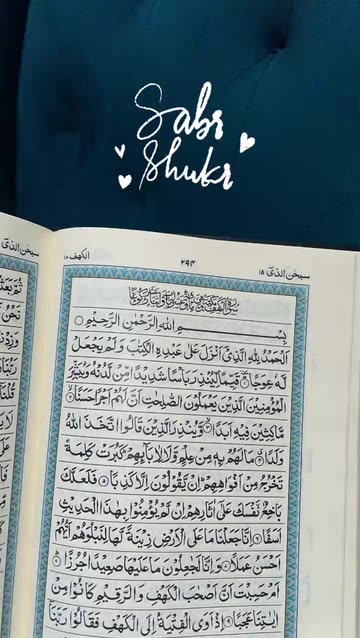 Sabr
Shukr
الكهف ١٨
٢٩٤
سبحن الذی ١٥
بِسْمِ اللهِ الرَّحْمٰنِ الرَّحِيْمِ
اَلْحَمْدُ لِلّٰهِ الَّذِيْٓ اَنْزَلَ عَلٰى عَبْدِهِ الْكِتٰبَ وَلَمْ يَجْعَلْ
لَّهٗ عِوَجًا ۜ قَيِّمًا لِّيُنْذِرَ بَاْسًا شَدِيْدًا مِّنْ لَّدُنْهُ وَيُبَشِّرَ
الْمُؤْمِنِيْنَ الَّذِيْنَ يَعْمَلُوْنَ الصّٰلِحٰتِ اَنَّ لَهُمْ اَجْرًا حَسَنًا
مَّاكِثِيْنَ فِيْهِ اَبَدًا وَّيُنْذِرَ الَّذِيْنَ قَالُوا اتَّخَذَ اللّٰهُ
وَلَدًا مَا لَهُمْ بِهٖ مِنْ عِلْمٍ وَّلَا لِاٰبَآئِهِمْ كَبُرَتْ كَلِمَةً
تَخْرُجُ مِنْ اَفْوَاهِهِمْ اِنْ يَّقُوْلُوْنَ اِلَّا كَذِبًا فَلَعَلَّكَ
بَاخِعٌ نَّفْسَكَ عَلٰٓى اٰثَارِهِمْ اِنْ لَّمْ يُؤْمِنُوْا بِهٰذَا الْحَدِيْثِ
اَسَفًا اِنَّا جَعَلْنَا مَا عَلَى الْاَرْضِ زِيْنَةً لَّهَا لِنَبْلُوَهُمْ اَيُّهُمْ
اَحْسَنُ عَمَلًا وَاِنَّا لَجٰعِلُوْنَ مَا عَلَيْهَا صَعِيْدًا جُرُزًا
اَمْ حَسِبْتَ اَنَّ اَصْحٰبَ الْكَهْفِ وَالرَّقِيْمِ كَانُوْا مِنْ
اٰيٰتِنَا عَجَبًا اِذْ اَوَى الْفِتْيَةُ اِلَى الْكَهْفِ فَقَالُوْا رَبَّنَآ